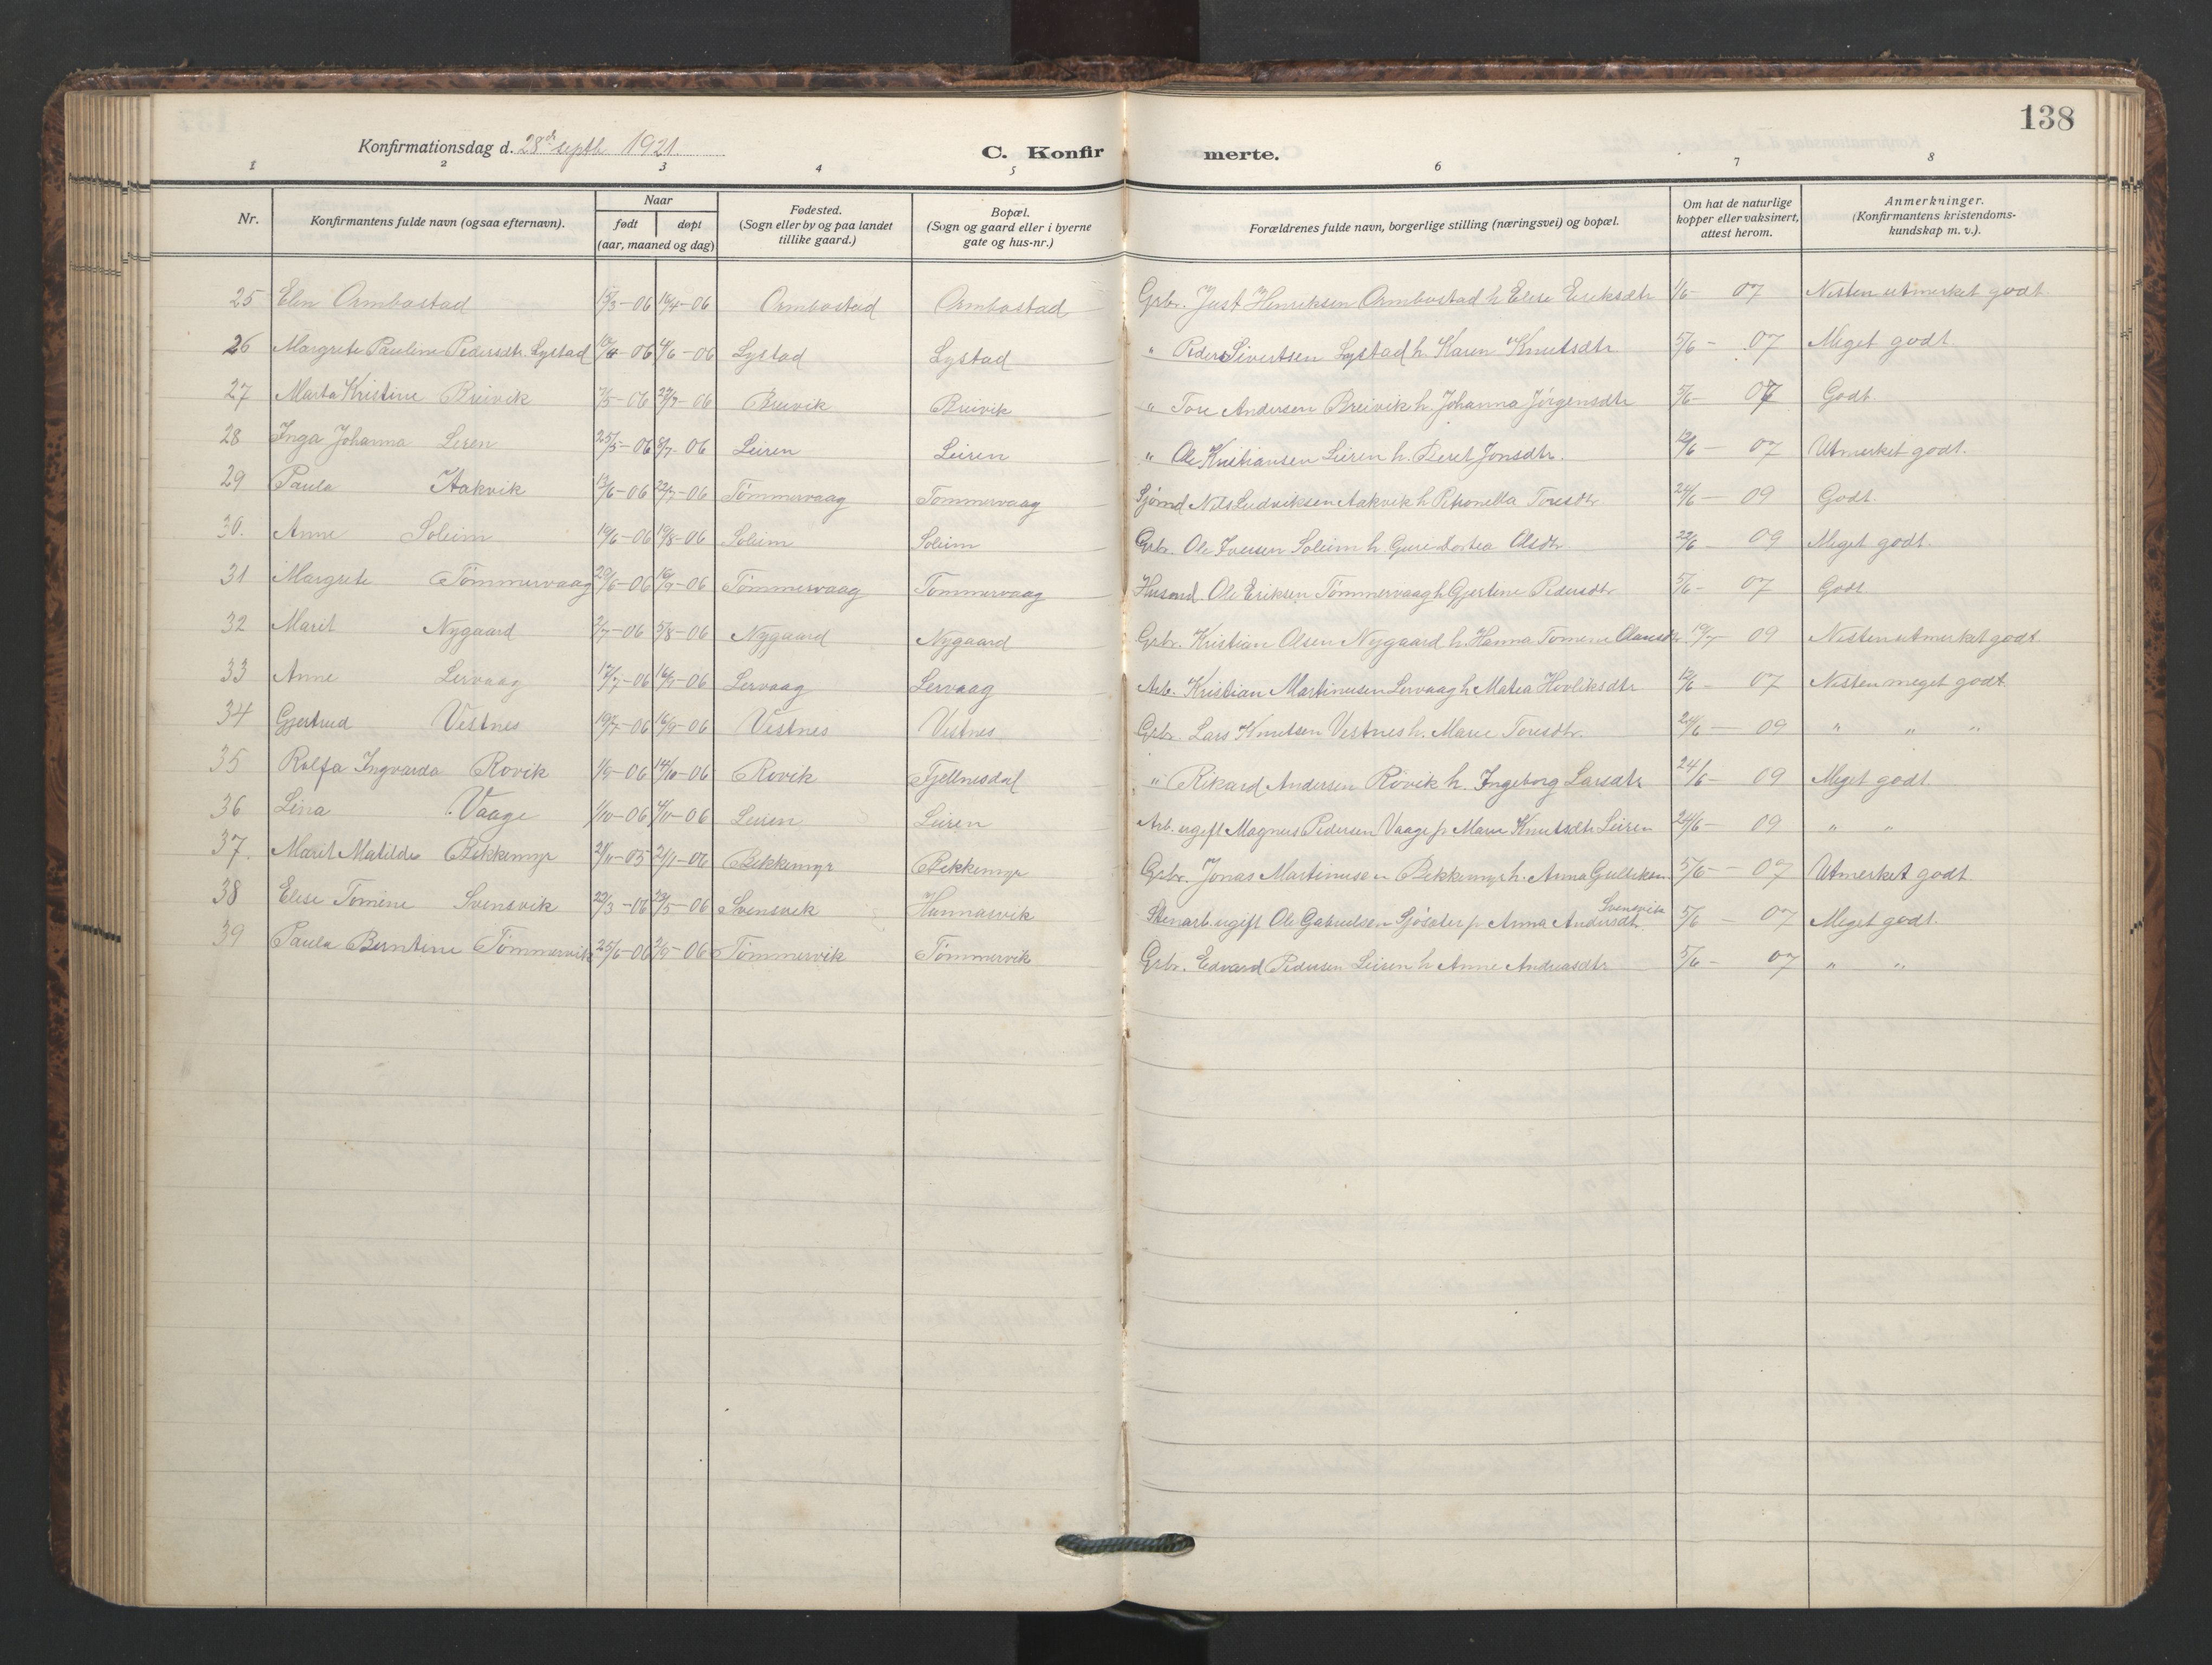 138
Konfirmationsdag d. 28de septb 1921.
C. Konfirmerte.
1 2 3 4 5 6 7 8
Nr. Konfirmantens fulde navn (ogsaa efternavn). Naar født døpt (aar, maaned og dag) Fødested. (Sogn eller by og paa landet tillike gaard.) Bopæl. (Sogn og gaard eller i byerne gate og hus-nr.) Forældrenes fulde navn, borgerlige stilling (næringsvei) og bopæl. Om hat de naturlige kopper eller vaksinert, attest herom. Anmerkninger. (Konfirmantens kristendomskundskap m. v.).
25 Elen Ormbostad 15/3-06 16/4-06 Ormbostad Ormbostad Grbr. Just Henriksen Ormbostad h Elise Eriksdtr 1/6- 07 Nesten utmerket godt
26 Margrete Pauline Pedersdtr. Lystad 10/4-06 4/6-06 Lystad Lystad " Peder Sivertsen Lystad h. Karen Knutsdtr 5/6- 07 Meget godt
27 Marta Kristine Breivik 7/5-06 22/7-06 Breivik Breivik " Tore Andersen Breivik h. Johanna Jörgensdtr 5/6- 07 Godt
28 Inga Johanna Leren 25/5-06 8/7-06 Leiren Leiren " Ole Kristiansen Leiren h. Beret Jonsdtr. 12/6- 07 Utmerket godt.
29 Paula Aakvik 13/6-06 22/7-06 Tömmervaag Tommervaag Sjömd Nils Ludviksen Aakvik h Petronella Toresdtr 24/6- 09 Godt.
30. Anne Soleim 19/6-06 19/8-06 Soleim Soleim Grbr. Ole Iversen Soleim h. Guri Dortea Olsdtr 22/6- 09 Meget godt.
31 Margrete Tömmervaag 29/6-06 16/9-06 Tömmervaag Tommervaag Husmd Ole Eriksen Tömmervaag h Gjertine Pedersdtr 5/6- 07 Godt.
32 Marit Nygaard 2/7-06 5/8-06 Nygaard Nygaard Grbr. Kristian Olsen Nygaard h. Hanna Tomine Olausdtr 19/7- 09 Nesten utmerket godt.
33 Anne Lervaag 12/7-06 16/9-06 Lervaag Lervaag Arb. Kristian Martinusen Lervaag h Matea Hovliksdtr 12/6- 07 Nesten meget godt
34 Gjertrud Vestnes 19/7-06 16/9-06 Vestnes Vestnes Grbr. Lars Knutsen Vestnes h. Marie Toresdtr. 24/6- 09 " " "
35 Rolfa Ingvarda Rovik 1/9-06 14/10-06 Rovik Fjellnesdal " Rikard Andersen Rövik h. Ingeborg Larsdtr 24/6- 09 Meget godt
36 Lina Vaage 1/10-06 4/11-06 Leiren Leiren Arb. ugift Magnus Pedersen Vaage p. Marie Knutsdtr Leiren 24/6- 09 " "
37. Marit Matilde Bekkemyr 21/11-05 21/1-06 Bekkemyr Bekkemyr Grbr. Jonas Martinusen Bekkemyr h. Anna Gulliksen 5/6- 07 Utmerket godt
38 Elise Tomine Svensvik 22/3-06 24/5-06 Svensvik Hannasvik Stenarb. ugift Ole Gabrielsen Sjösæter p. Anna Andersdtr. Svensvik 5/6 07 Meget godt.
39 Paula Berntine Tömmervik 25/6-06 2/9-06 Tömmervik Tömmervik Grbr. Edvard Pedersen Leiren h Anne Andreasdtr 5/6- 07 " "